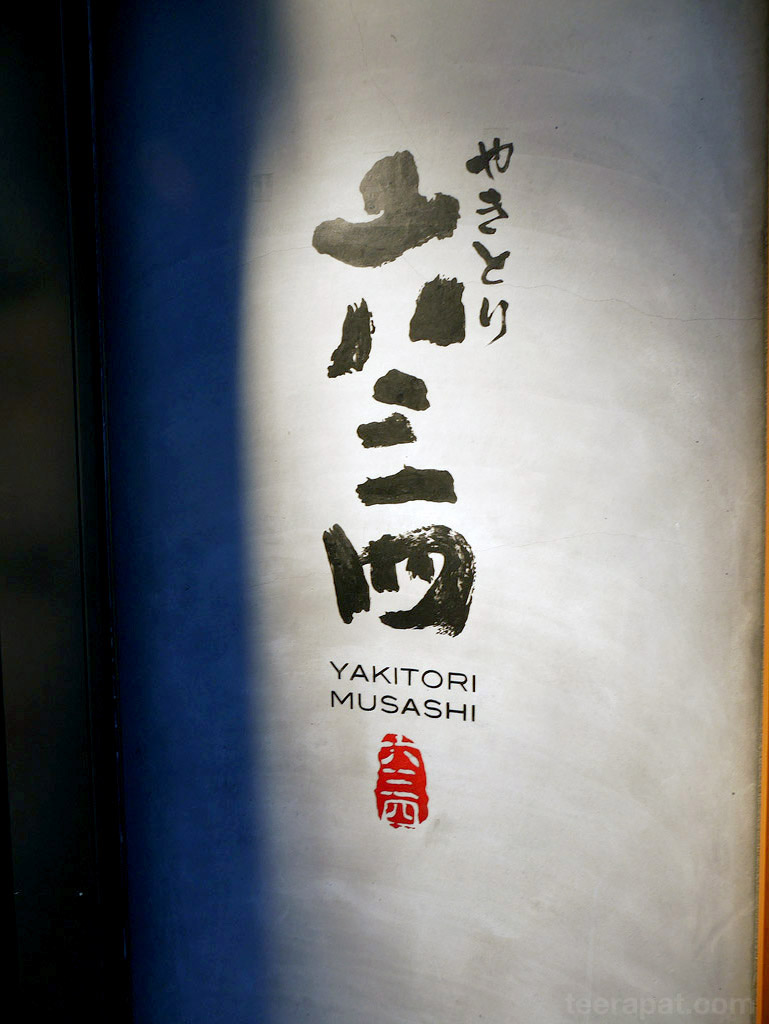 やきとり
六三四
YAKITORI
MUSASHI
六三四
teerapat.com